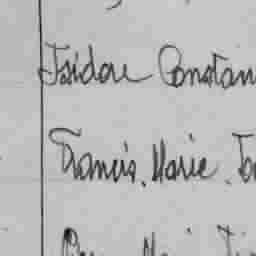 Isidore Constan
Francis, Marie, Jo
Marie